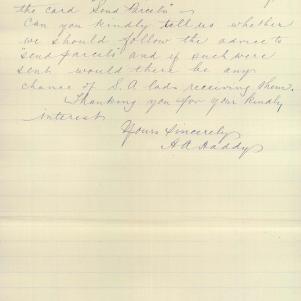 the card "Send Parcels" -
Can you kindly tell us whether
we should follow the advice to
"send parcels" and if such were
sent would there be any
chance of S.A lads receiving them.
Thanking you for your kindly
interest
Yours Sincerely
H A Haddy